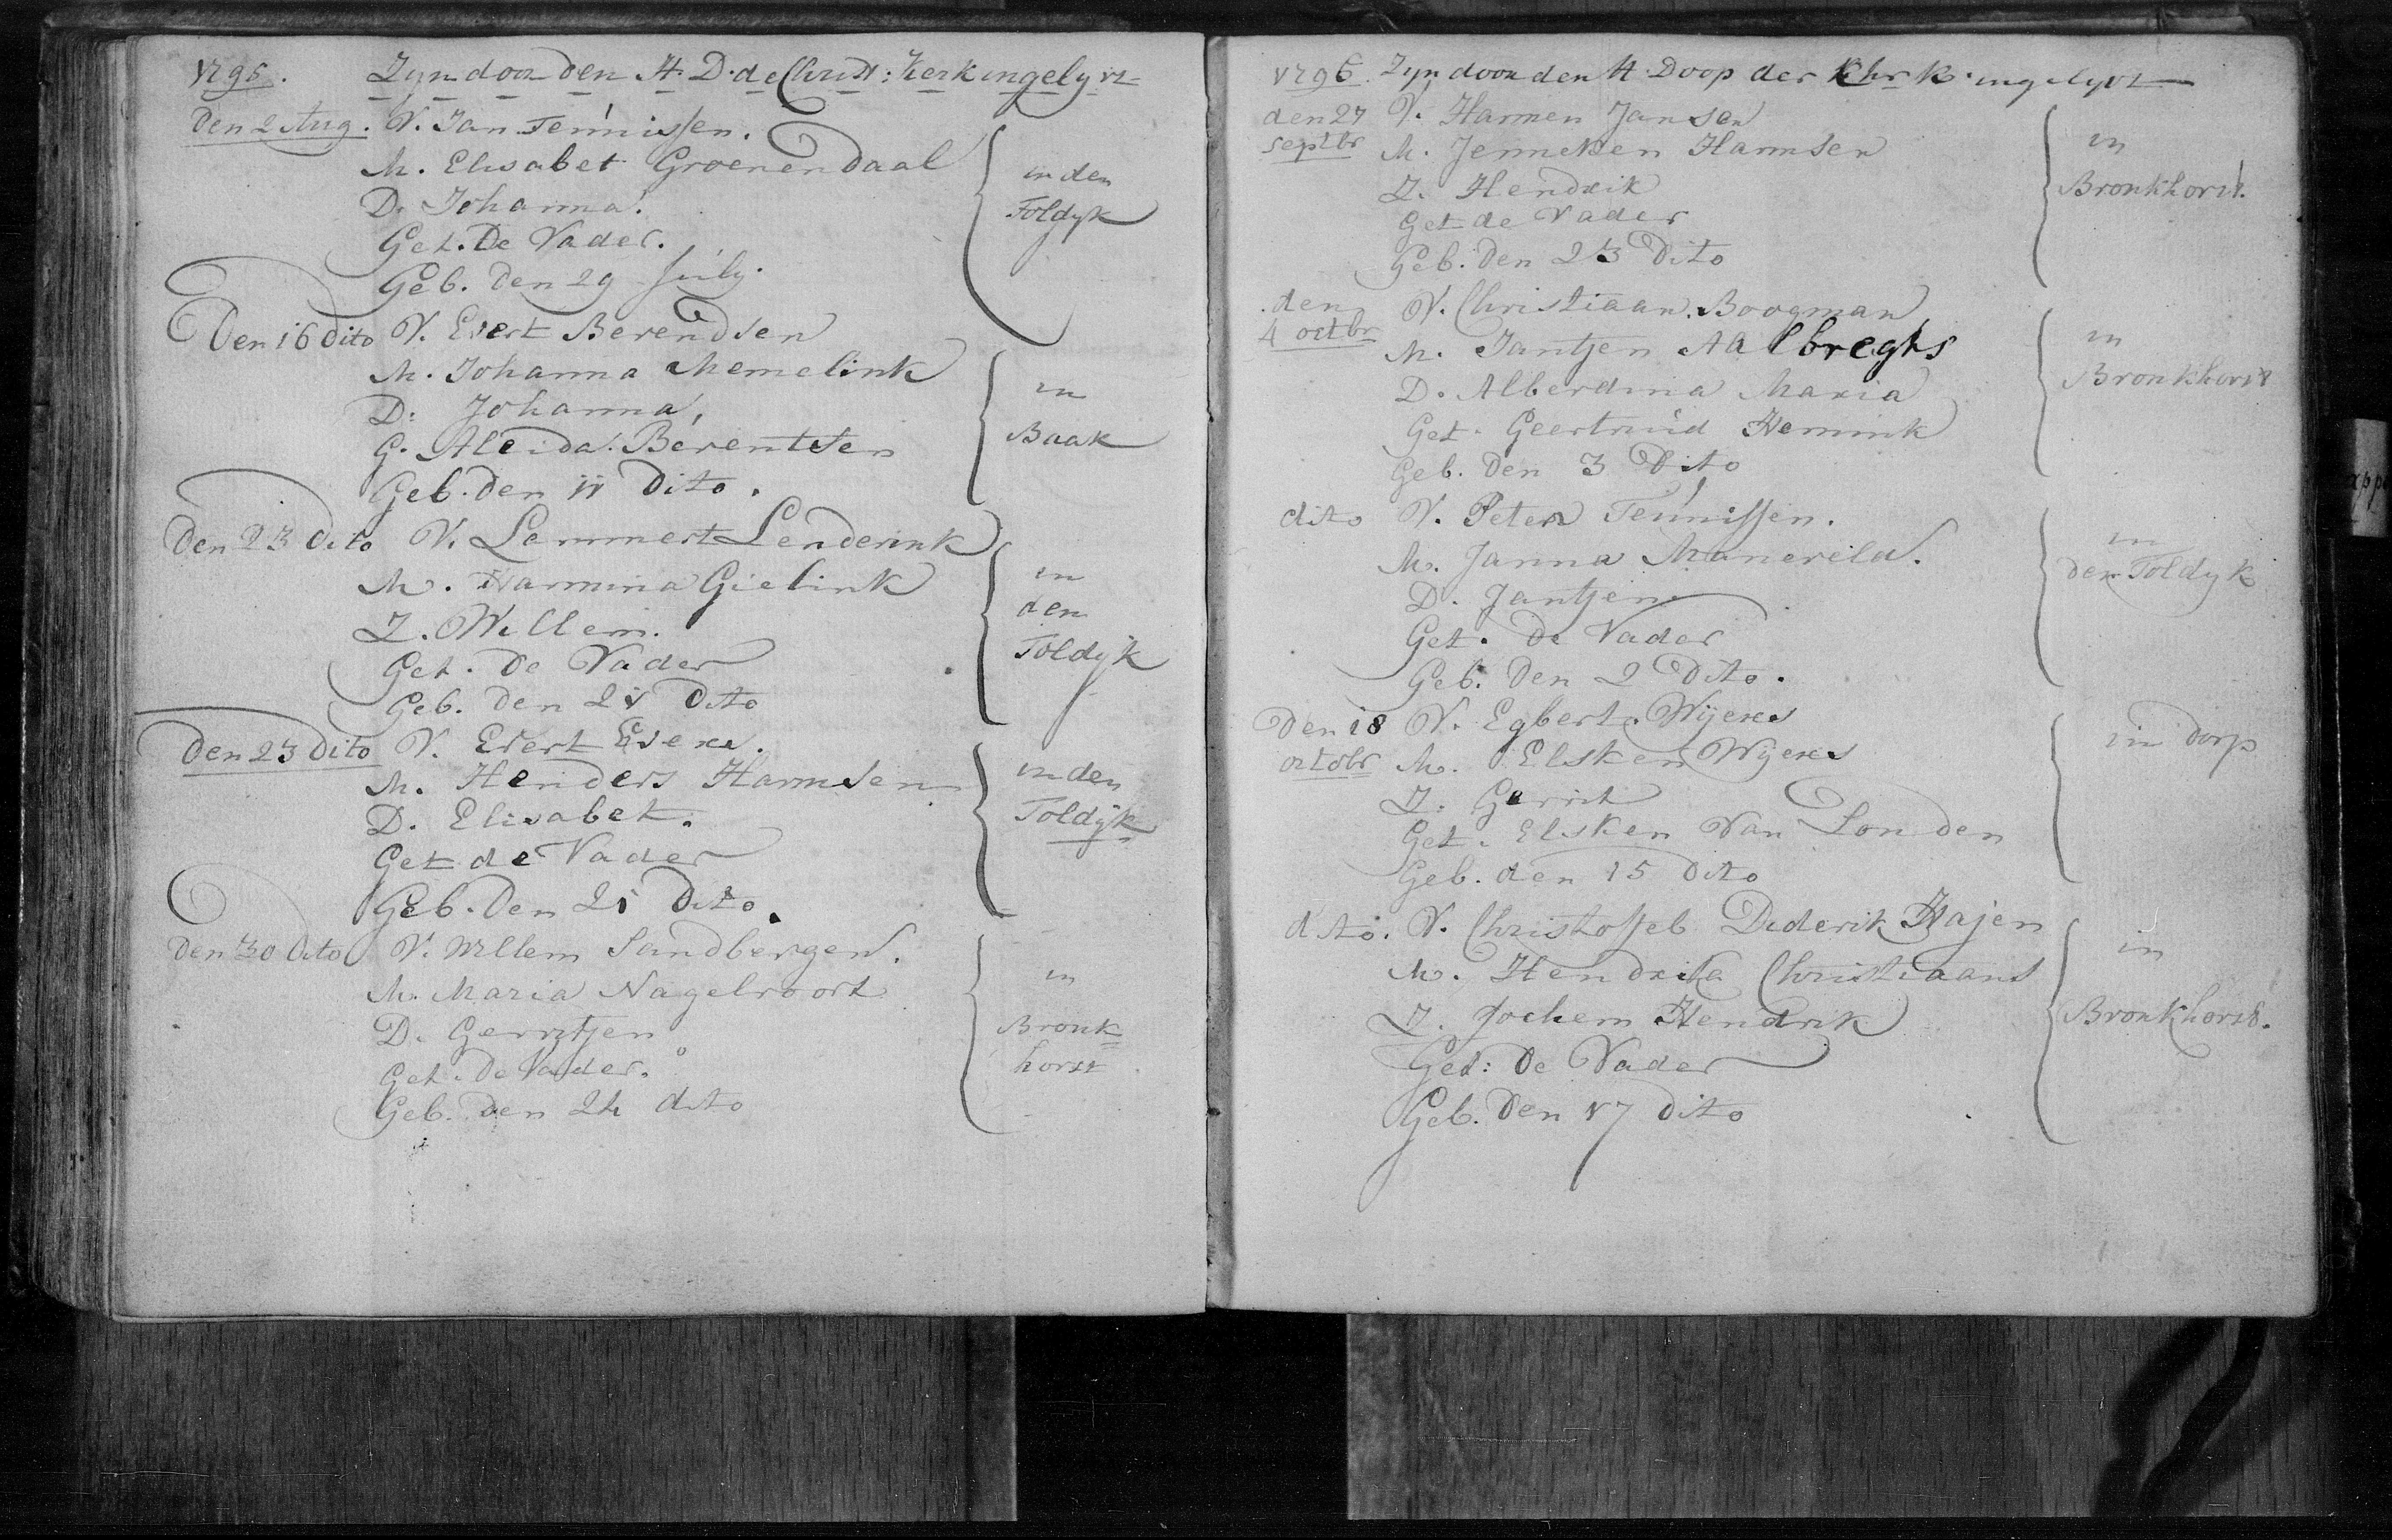 1795. Zyn door den H. D. de Christ: Kerk ingelyvt
Den 2 Aug. V. Jan Teúnissen.
M. Elisabet Groenendaal
D. Johanna.
Get. De Vader.
Geb. den 29 Júly.
in den
Toldyk
Den 16 dito V. Evert Berendsen
M. Johanna Memelink
D: Johanna,
G. Aleida. Berentsen
Geb. den 11 Dito.
in
Baak
Den 23 dito V. Lammert Lenderink
M. Harmina Gielink
Z. Willem.
Get. De Vader
Geb. Den 21 Dito
in
den
Toldyk
Den 23 Dito V. Evert Evers.
M. Henders Harmsen
D. Elisabet.
Get de Vader
Geb. Den 21 Dito.
in den
Toldÿk
Den 30 dito V. Willem Sandbergen.
M. Maria Nagelvoort
D. Gerritjen
Get. De Vader.
Geb. Den 24 dito
in
Bronk
horst
1796. Zyn door den H. Doop der Chr K. ingelyvt
den 27 V. Harmen Jansen
Septbr M. Jenneken Harmsen
Z. Hendrik
Get de Vader
Geb. Den 23 Dito
in
Bronkhorst.
den V. Christiaan. Boogman
4 octbr M. Jantjen Aalbreghs
D. Alberdina Maria
Get. Geertruid Hemink
Geb. Den 3 Dito
in
Bronkhorst
dito V. Peter Teúnissen.
M. Janna Maneveld.
D. Jantjen.
Get. De Vader
Geb. Den 2 Dito.
in
den Toldyk
Den 18 V. Egbert Wÿers
octobr M. Elsken Wÿers
Z. Gerrit
Get. Elsken Van Londen
Geb. den 15 Dito
in dorp
dito. V. Christoffel Diderik Hajen
M. Hendrika Christiaans
Z. Jochem Hendrik
Get: De Vader
Geb. Den 17 Dito
in
Bronkhorst.